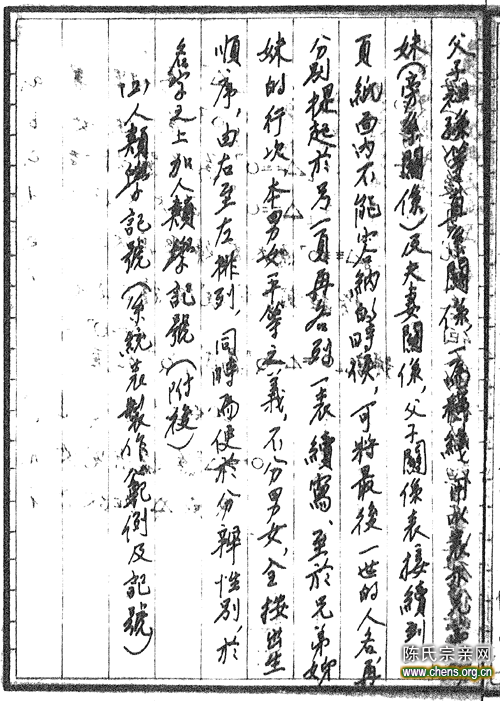 父子祖孫等直系關係,一為橫線,用以表示兄弟姊
妹(旁系關係)及夫妻關係,父子關係表接續到
頁紙面內不能容納的時候,可將最後一世的人名再
分別提起於另一頁再各列一表續寫、至於兄弟姊
妹的行次,本男女平等之義,不分男女,全按出生
順序,由右至左排列,同時為便於分辨性別,於
名字之上加人類學記號(附後)
(四)人類學記號(系統表製作範例及記號)
陈氏宗亲网
www.chens.org.cn